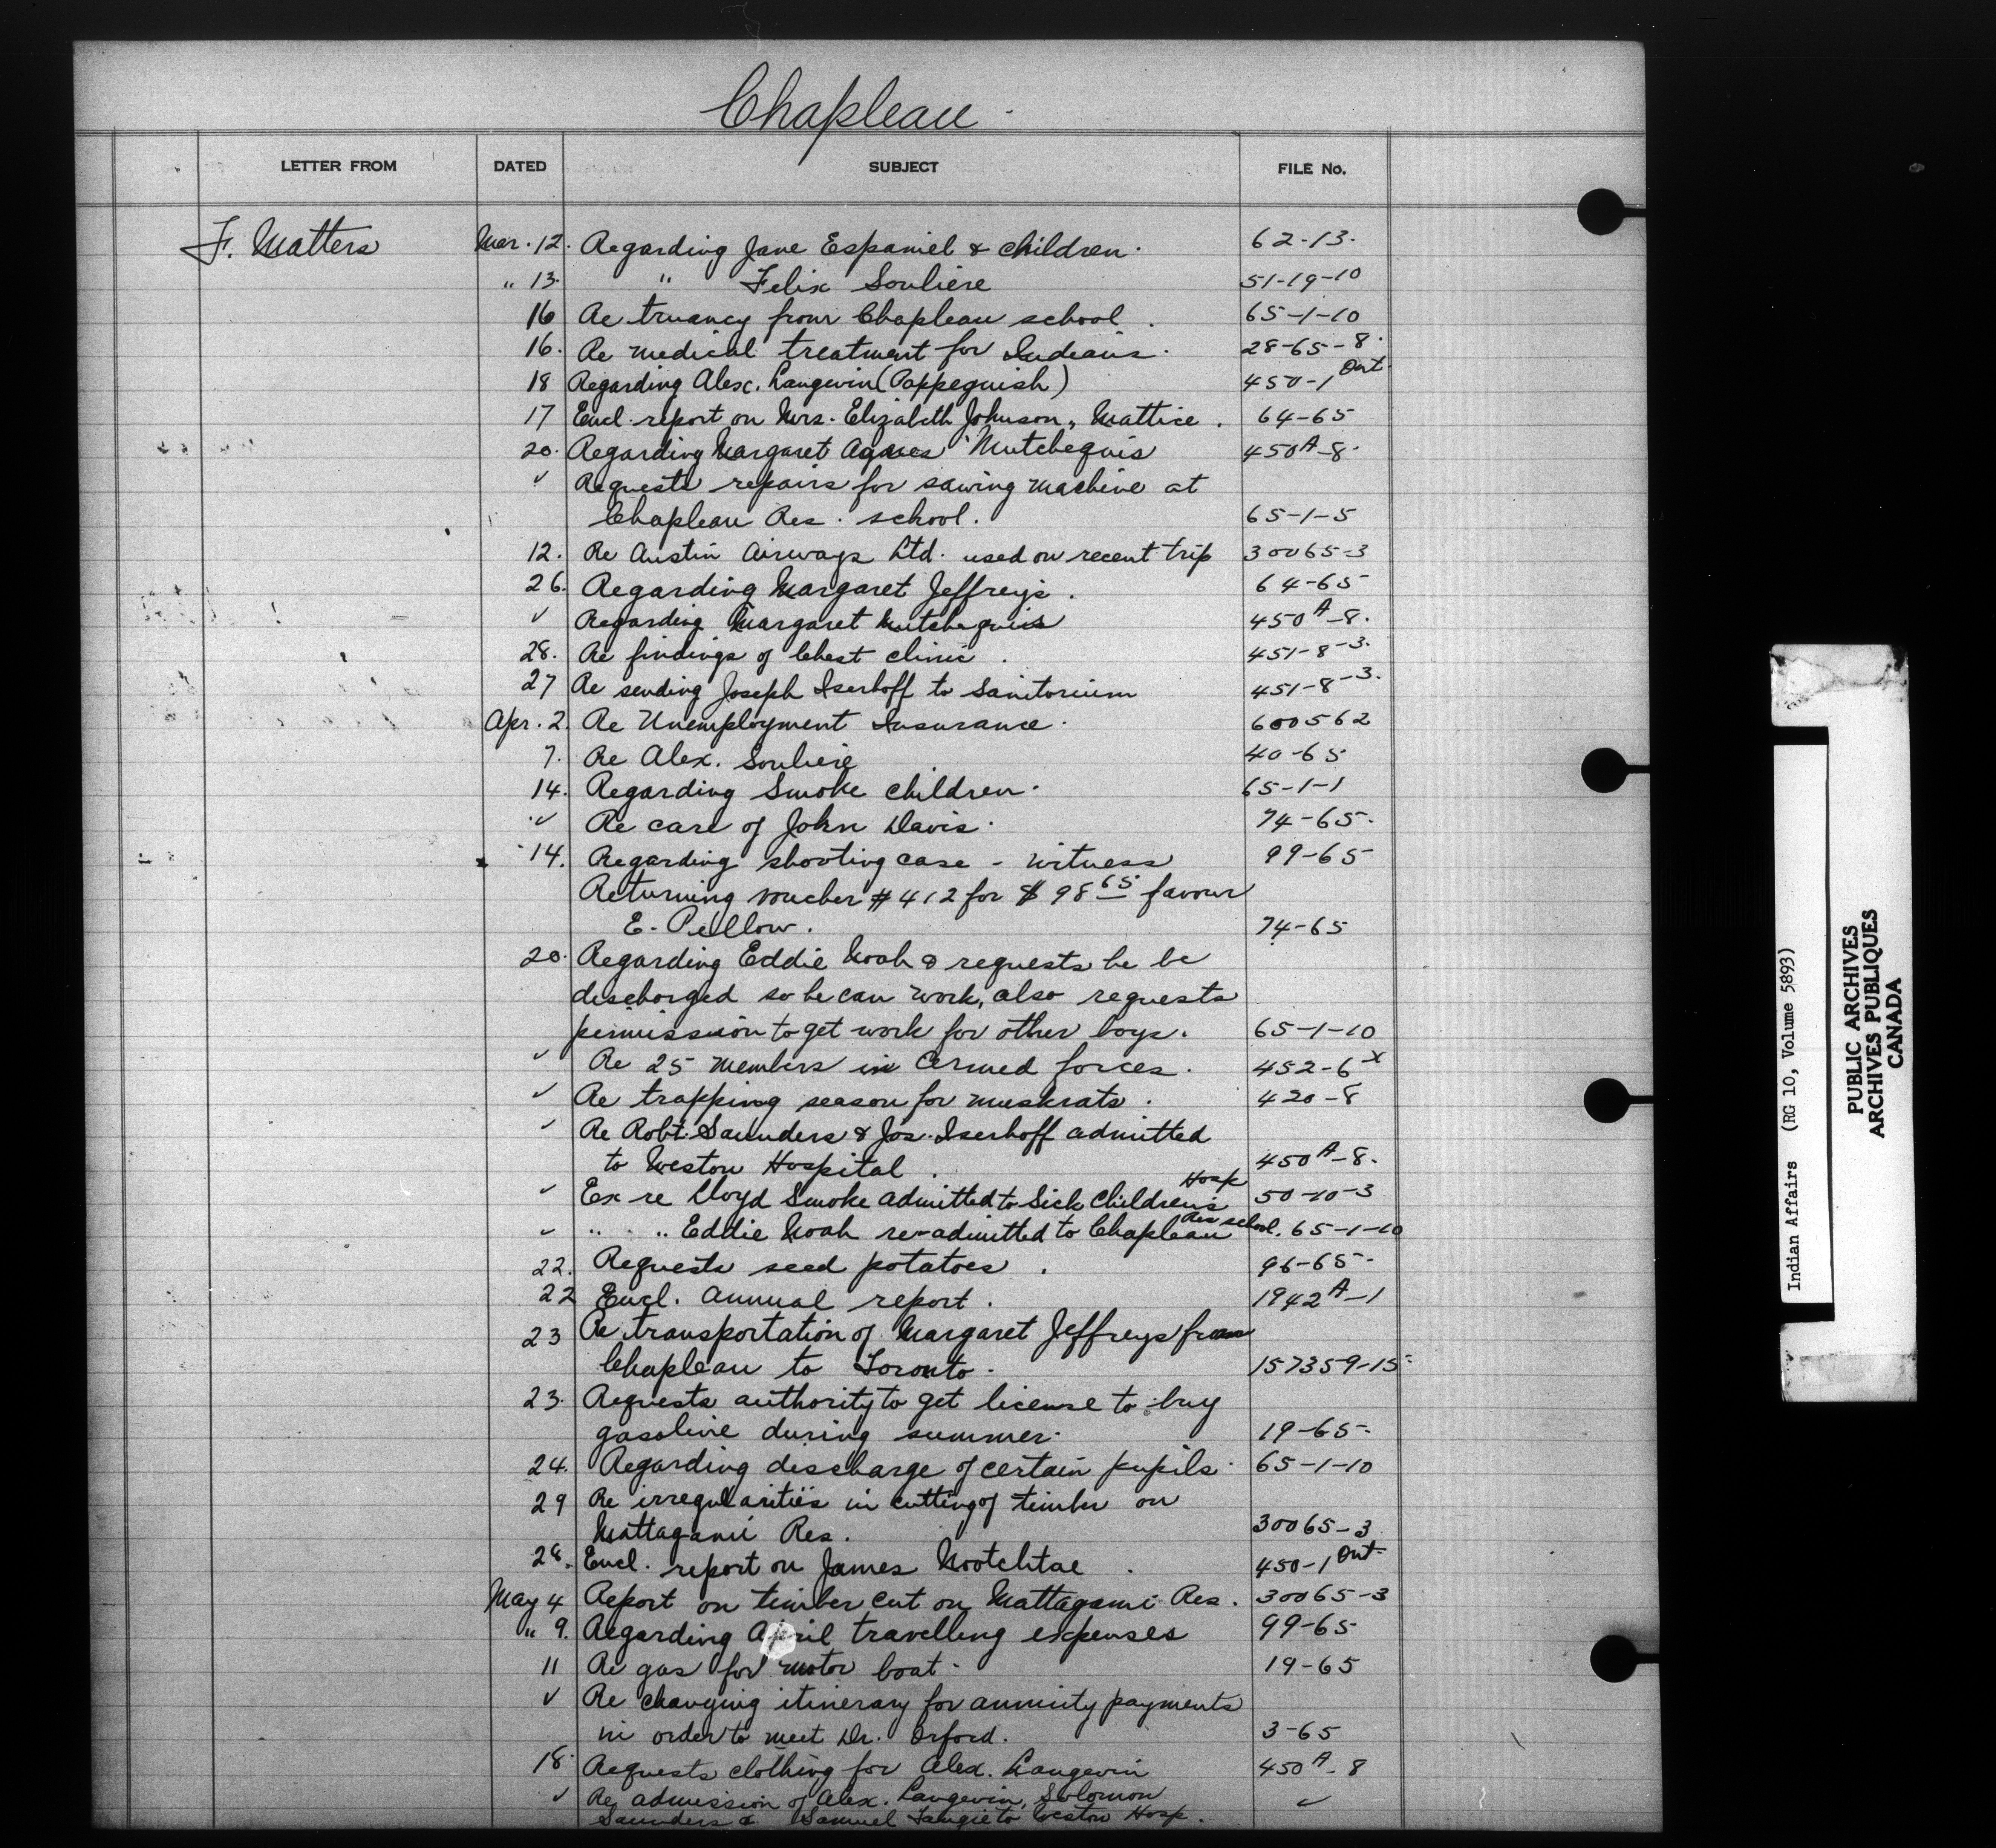 Chapleau
LETTER FROM DATED SUBJECT FILE No.
F. Matters Mar. 12. Regarding Jane Espaniel & children. 62-13.
" 13. " Felix Souliere 51-19-10
16 Re truancy from Chapleau school. 65-1-10
16. Re medical treatment for Indians. 28-65-8.
18 Regarding Alex. Langevin (Pappeguish) 450-1 Ont.
17 Encl. report on Mrs. Elizabeth Johnson, Mattice. 64-65
20. Regarding Margaret Agnes Mutchequis 450A-8.
✓ Requests repairs for sawing machine at
Chapleau Res. school. 65-1-5
12. Re Austin Airways Ltd. used on recent trip 30065-3
26. Regarding Margaret Jeffreys. 64-65
✓ Regarding Margaret Mutchequis 450A-8.
28. Re findings of Chest clinic. 451-8-3.
27 Re sending Joseph Iserhoff to Sanitorium 451-8-3.
Apr. 2. Re Unemployment Insurance. 600562
7. Re Alex. Souliere 40-65
14. Regarding Smoke children. 65-1-1
✓ Re care of John Davis. 74-65.
14. Regarding shooting case - witness 99-65
Returning voucher #412 for $98 65 favour
E. Pellow. 74-65
20. Regarding Eddie Noah & requests he be
discharged so he can work, also requests
permission to get work for other boys. 65-1-10
✓ Re 25 members in Armed forces. 452-6 x
✓ Re trapping season for muskrats. 420-8
✓ Re Robt. Saunders & Jos. Iserhoff admitted
to Weston Hospital. 450A-8.
✓ Ex re Lloyd Smoke admitted to Sick Children's Hosp 50-10-3
✓ " " " Eddie Noah re-admitted to Chapleau Res school. 65-1-10
22. Requests seed potatoes. 96-65.
22 Encl. annual report. 1942A-1
23 Re transportation of Margaret Jeffreys from
Chapleau to Toronto. 157359-15.
23. Requests authority to get license to buy
gasoline during summer. 19-65.
24. Regarding discharge of certain pupils. 65-1-10
29 Re irregularities in cutting of timber on
Mattagami Res. 30065-3
28. Encl. report on James Nootchtae. 450-1 Ont.
May 4 Report on timber cut on Mattagami Res. 30065-3
" 9. Regarding April travelling expenses 99-65
11 Re gas for motor boat. 19-65
✓ Re changing itinerary for annuity payments
in order to meet Dr. Orford. 3-65
18. Requests clothing for Alex. Langevin 450A-8
✓ Re admission of Alex. Langevin, Solomon ✓
Saunders & Samuel Tangie to Weston Hosp.
Indian Affairs (RG 10, Volume 5893)
PUBLIC ARCHIVES
ARCHIVES PUBLIQUES
CANADA